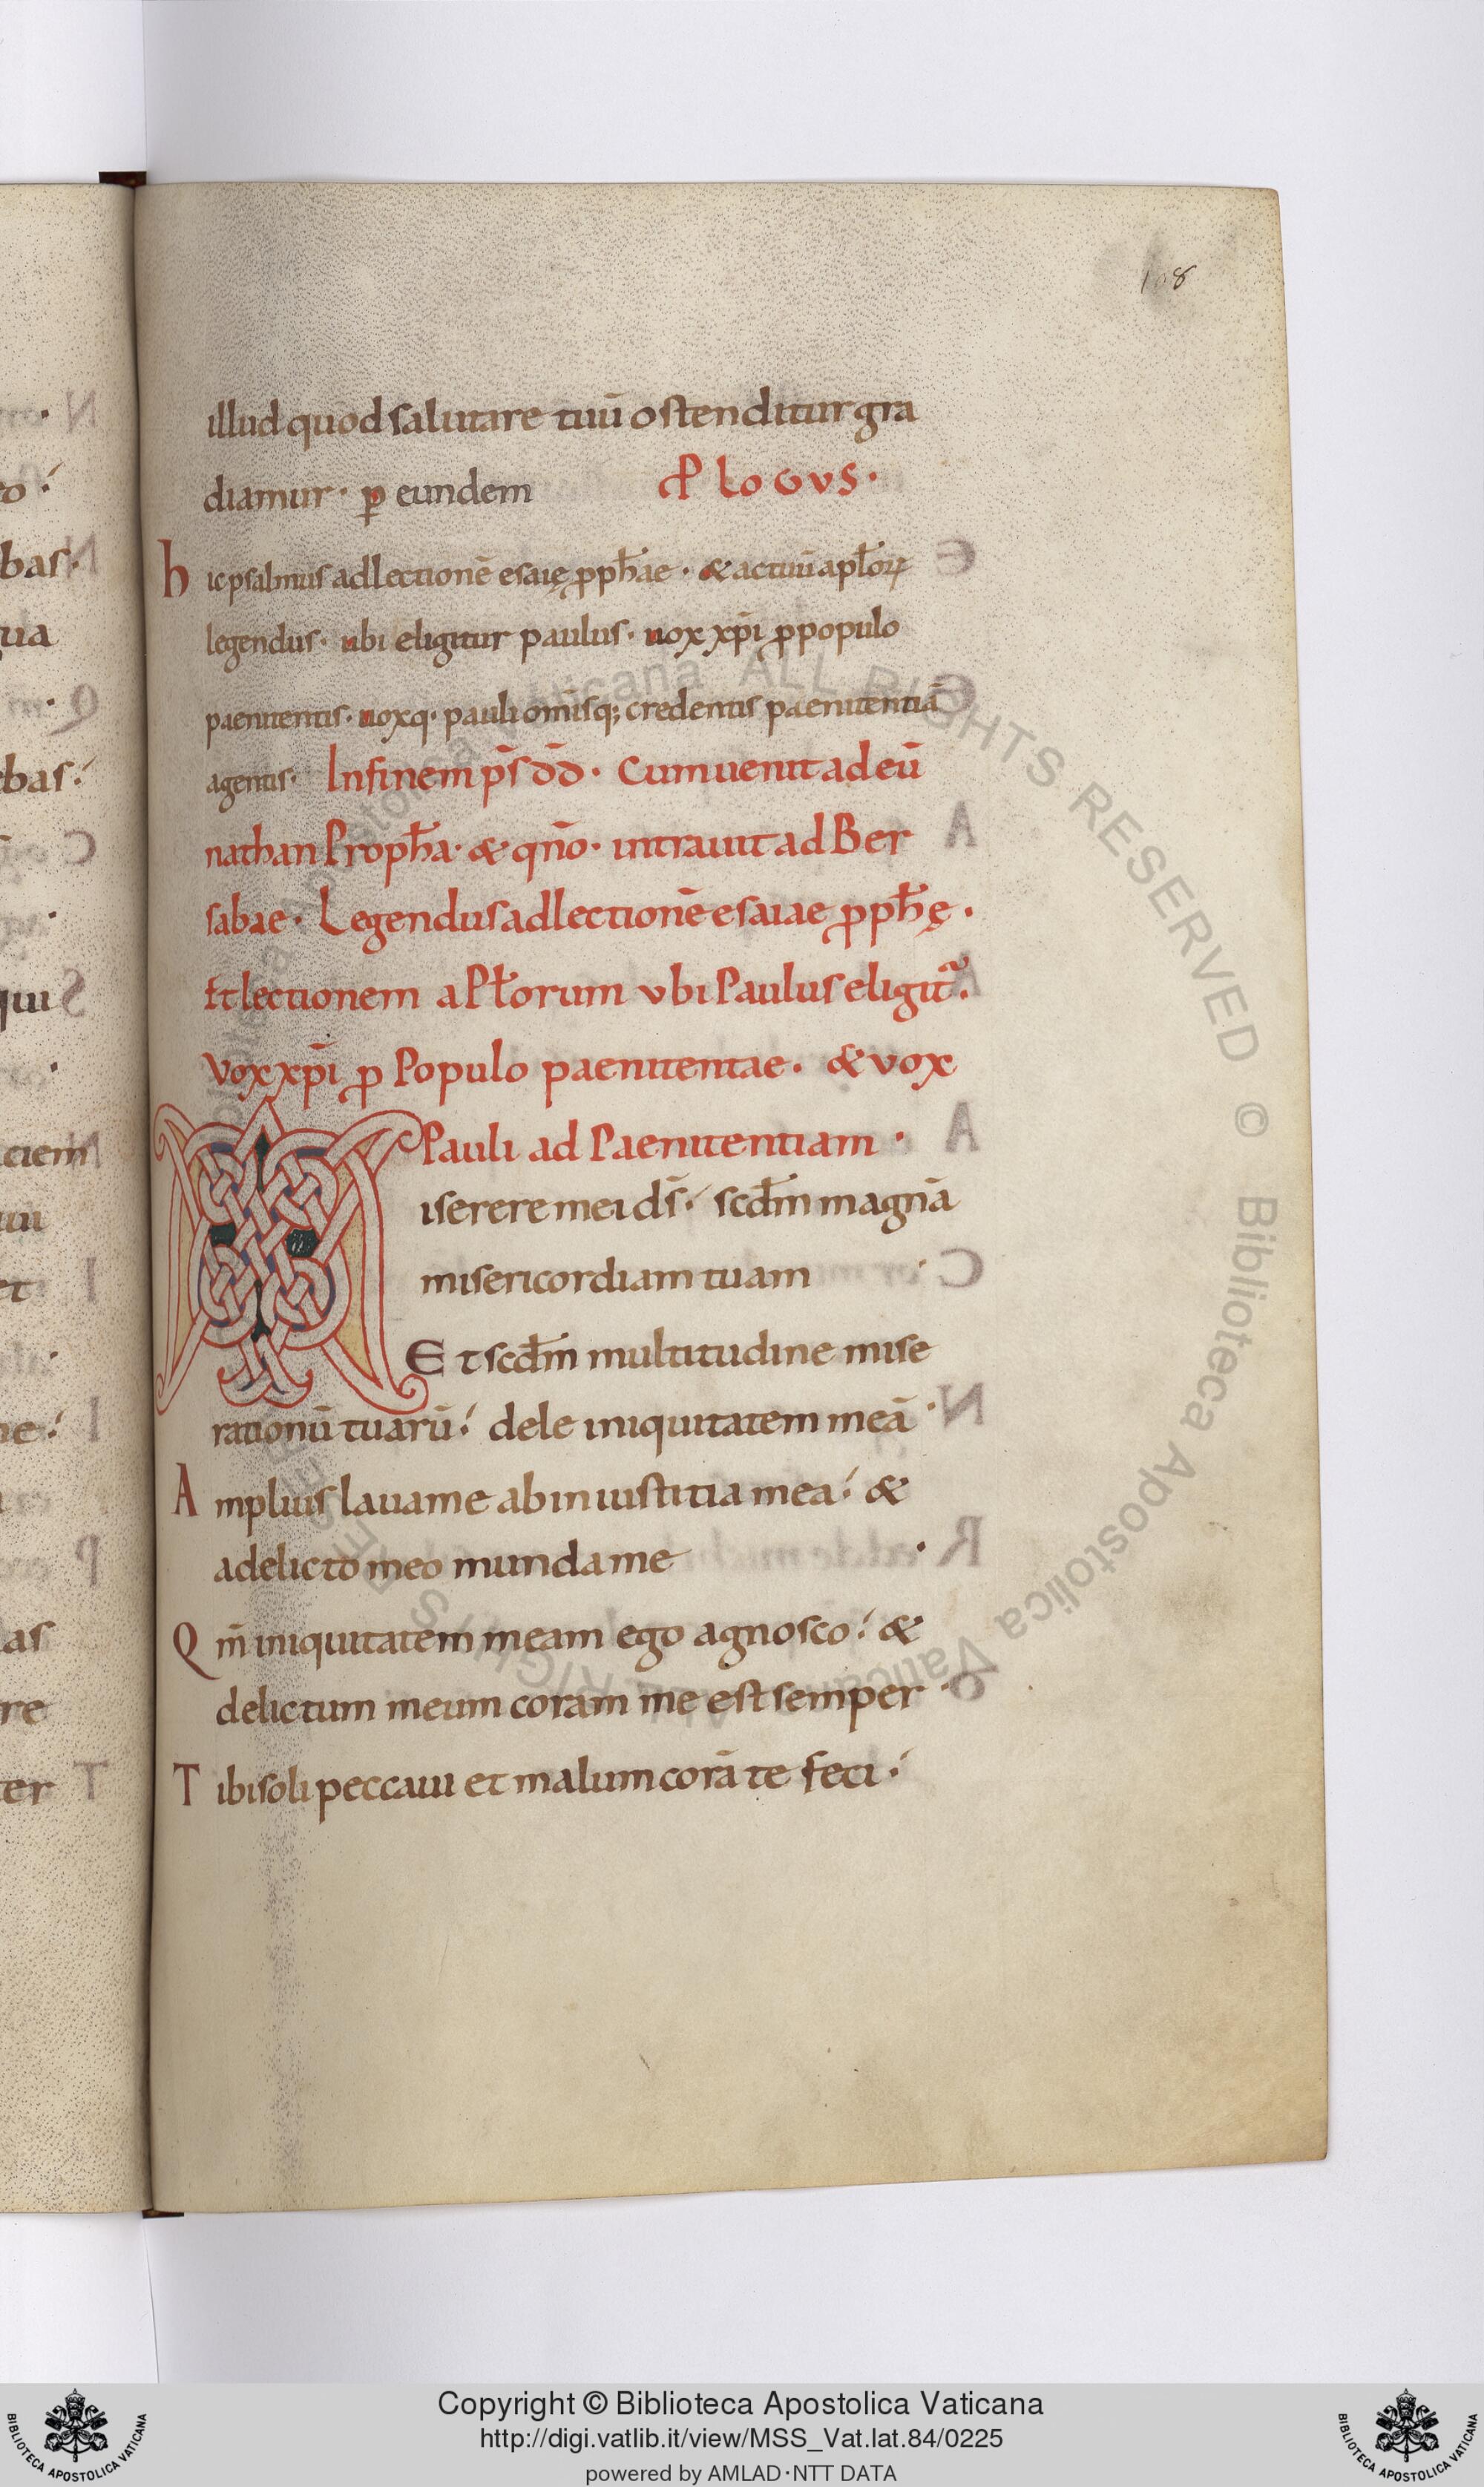 108
illud quod salutare tuū ostenditur gra
diamur · ꝑ eundem PloGVS ·
hic psalmus ad lectionē esaię ꝓph̄ae · & actuū apl̄oꝝ
legendus · ubi eligitur paulus · uox xp̄i ꝓ populo
paenitentis · uoxq · pauli om̄isq; credentis paenitentiā
agentis · In finem ps̄ dd̄ · Cum uenit ad eū
nathan Proph̄a · & qn̄o · intrauit ad Ber
sabae · Legendus ad lectionē esaiae ꝓph̄ę ·
Et lectionem aPl̄orum vbi Paulus eligit᷑ ·
Vox xp̄i ꝓ Populo paenitentae · & vox
Pauli ad Paenitentiam ·
Miserere mei ds̄ scdm̄ magnā
misericordiam tuam
Et scdm̄ multitudine mise
rationū tuarū dele iniquitatem meā ·
Amplius laua me ab iniustitia mea &
a delicto meo munda me ·
Qm̄ iniquitatem meam ego agnosco &
delictum meum coram me est semper ·
Tibi soli peccaui et malum corā te feci
Copyright © Biblioteca Apostolica Vaticana
http://digi.vatlib.it/view/MSS_Vat.lat.84/0225
powered by AMLAD·NTT DATA
BIBLIOTECA APOSTOLICA VATICANA
BIBLIOTECA APOSTOLICA VATICANA